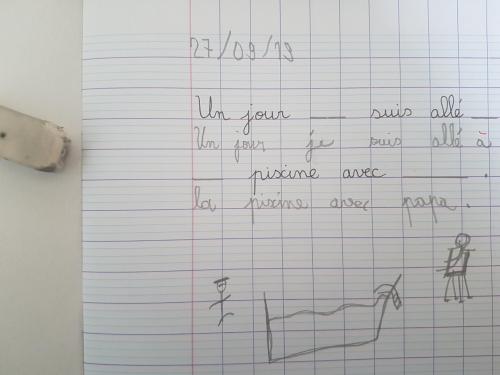 27/09/19
Un jour ___ suis allé __
Un jour je suis allé à
___ piscine avec ______.
la piscine avec papa.